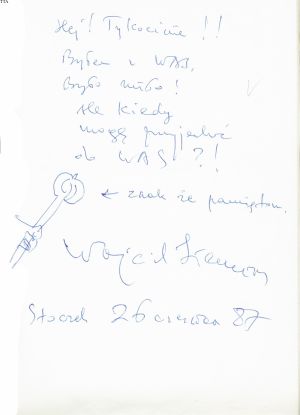 Hej! Tykocinie!!
Byłem u WAS,
Było miło!
ale kiedy
mogę przyjechać
do WAS?!
← znak że pamiętam.
Wojciech
26 czerwca 87